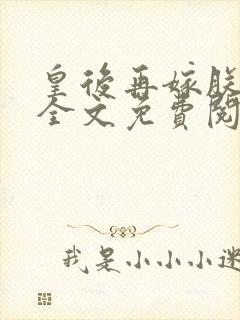 皇後再嫁朕
全文免費閱
我是小小小迷